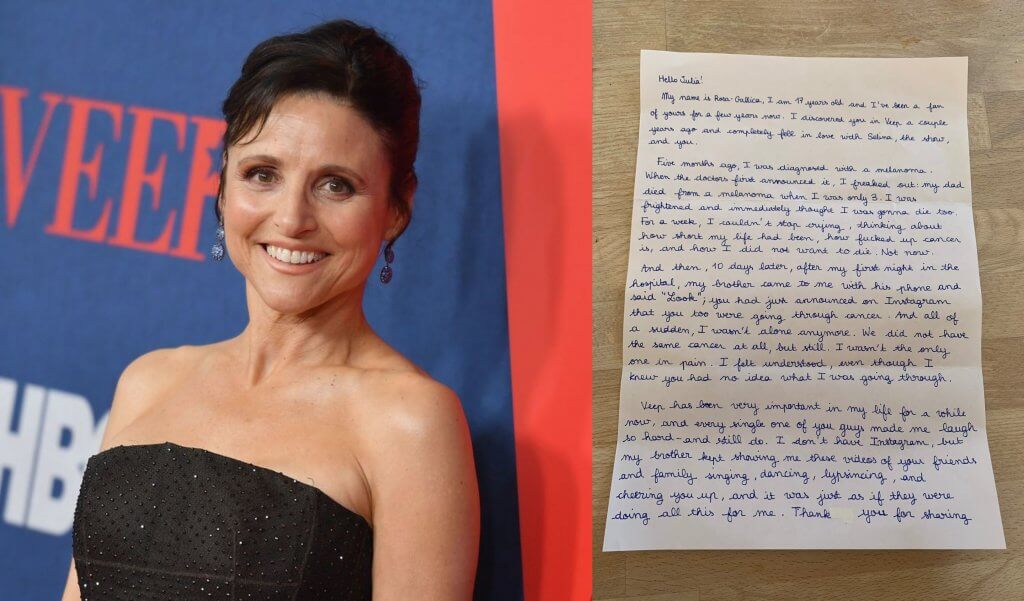 VEEP
HBO
Hello Julia!
My name is Rosa-Gallica, I am 17 years old and I've been a fan
of yours for a few years now. I discovered you in Veep a couple
years ago and completely fell in love with Selina, the show,
and you.
Five months ago, I was diagnosed with a melanoma.
When the doctors first announced it, I freaked out: my dad
died from a melanoma when I was only 3. I was
frightened and immediately thought I was gonna die too.
For a week, I couldn't stop crying, thinking about
how short my life had been, how fucked up cancer
is, and how I did not want to die. Not now.
And then, 10 days later, after my first night in the
hospital, my brother came to me with his phone and
said "Look"; you had just announced on Instagram
that you too were going through cancer. And all of
a sudden, I wasn't alone anymore. We did not have
the same cancer at all, but still. I wasn't the only
one in pain. I felt understood, even though I
knew you had no idea what I was going through.
Veep has been very important in my life for a while
now, and every single one of you guys made me laugh
so hard - and still do. I don't have Instagram, but
my brother kept showing me these videos of your friends
and family singing, dancing, lypsincing, and
cheering you up, and it was just as if they were
doing all this for me. Thank you for sharing